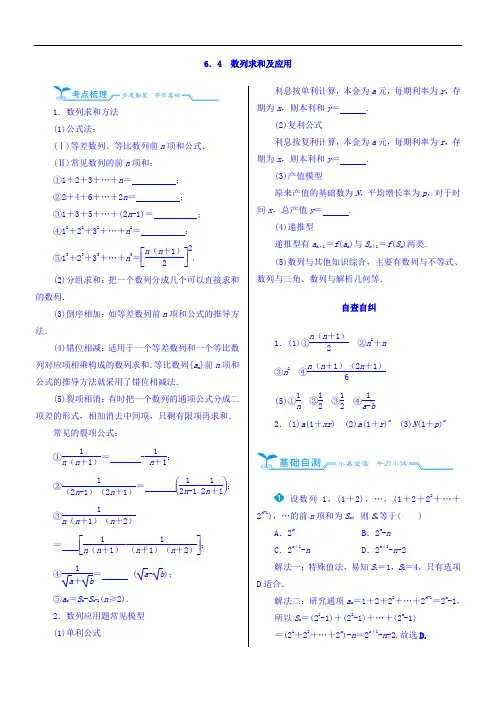 6.4 数列求和及应用
考点梳理
多思勤笔 夯实基础
1.数列求和方法
(1)公式法:
(Ⅰ)等差数列、等比数列前n项和公式.
(Ⅱ)常见数列的前n项和:
①1+2+3+…+n=________;
②2+4+6+…+2n=________;
③1+3+5+…+(2n-1)=________;
④1²+2²+3²+…+n²=________;
⑤1³+2³+3³+…+n³=[n(n+1)/2]².
(2)分组求和:把一个数列分成几个可以直接求和
的数列.
(3)倒序相加:如等差数列前n项和公式的推导方
法.
(4)错位相减:适用于一个等差数列和一个等比数
列对应项相乘构成的数列求和.等比数列{aₙ}前n项和
公式的推导方法就采用了错位相减法.
(5)裂项相消:有时把一个数列的通项公式分成二
项差的形式,相加消去中间项,只剩有限项再求和.
常见的裂项公式:
①1/n(n+1)=______-1/(n+1);
②1/(2n-1)(2n+1)=______(1/(2n-1) 1/(2n+1));
③1/n(n+1)(n+2)
=____[1/n(n+1) 1/(n+1)(n+2)];
④1/(√a+√b)=______(√a-√b);
⑤aₙ=Sₙ-Sₙ₋₁(n≥2).
2.数列应用题常见模型
(1)单利公式
利息按单利计算,本金为a元,每期利率为r,存
期为x,则本利和y=______.
(2)复利公式
利息按复利计算,本金为a元,每期利率为r,存
期为x,则本利和y=______.
(3)产值模型
原来产值的基础数为N,平均增长率为p,对于时
间x,总产值y=______.
(4)递推型
递推型有aₙ₊₁=f(aₙ)与Sₙ₊₁=f(Sₙ)两类.
(5)数列与其他知识综合,主要有数列与不等式、
数列与三角、数列与解析几何等.
自查自纠
1.(1)①n(n+1)/2 ②n²+n
③n² ④n(n+1)(2n+1)/6
(5)①1/n ②1/2 ③1/2 ④1/(a-b)
2.(1)a(1+xr) (2)a(1+r)ˣ (3)N(1+p)ˣ
基础自测
小题查漏 牛刀小试
1 设数列1,(1+2),…,(1+2+2²+…+
2ⁿ⁻¹),…的前n项和为Sₙ,则Sₙ等于( )
A.2ⁿ B.2ⁿ-n
C.2ⁿ⁺¹-n D.2ⁿ⁺¹-n-2
解法一:特殊值法,易知S₁=1,S₂=4,只有选项
D适合.
解法二:研究通项aₙ=1+2+2²+…+2ⁿ⁻¹=2ⁿ-1,
所以Sₙ=(2¹-1)+(2²-1)+…+(2ⁿ-1)
=(2¹+2²+…+2ⁿ)-n=2ⁿ⁺¹-n-2.故选D.